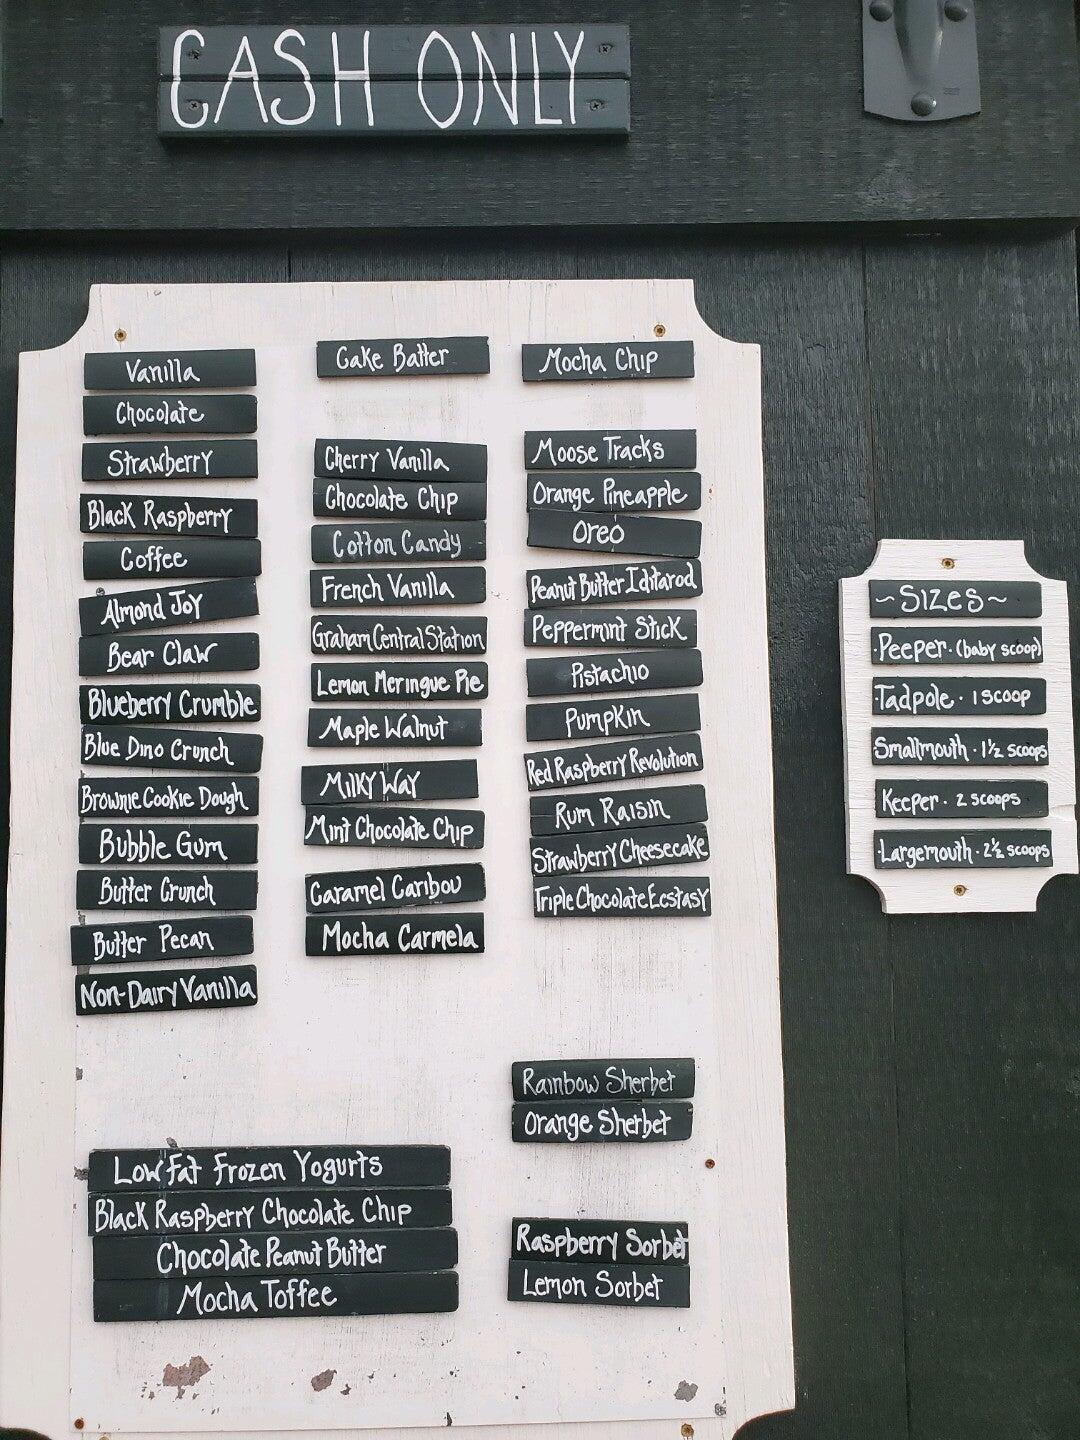 CASH ONLY
Vanilla
Chocolate
Strawberry
Black Raspberry
Coffee
Almond Joy
Bear Claw
Blueberry Crumble
Blue Dino Crunch
Brownie Cookie Dough
Bubble Gum
Butter Crunch
Butter Pecan
Non-Dairy Vanilla
Cake Batter
Cherry Vanilla
Chocolate Chip
Cotton Candy
French Vanilla
Graham Central Station
Lemon Meringue Pie
Maple Walnut
Milky Way
Mint Chocolate Chip
Caramel Caribou
Mocha Carmela
Mocha Chip
Moose Tracks
Orange Pineapple
Oreo
Peanut Butter Iditarod
Peppermint Stick
Pistachio
Pumpkin
Red Raspberry Revolution
Rum Raisin
Strawberry Cheesecake
Triple Chocolate Ecstasy
Rainbow Sherbet
Orange Sherbet
Raspberry Sorbet
Lemon Sorbet
Low Fat Frozen Yogurts
Black Raspberry Chocolate Chip
Chocolate Peanut Butter
Mocha Toffee
~Sizes~
·Peeper· (baby scoop)
·Tadpole · 1 scoop
Smallmouth · 1½ scoops
Keeper · 2 scoops
·Largemouth · 2½ scoops